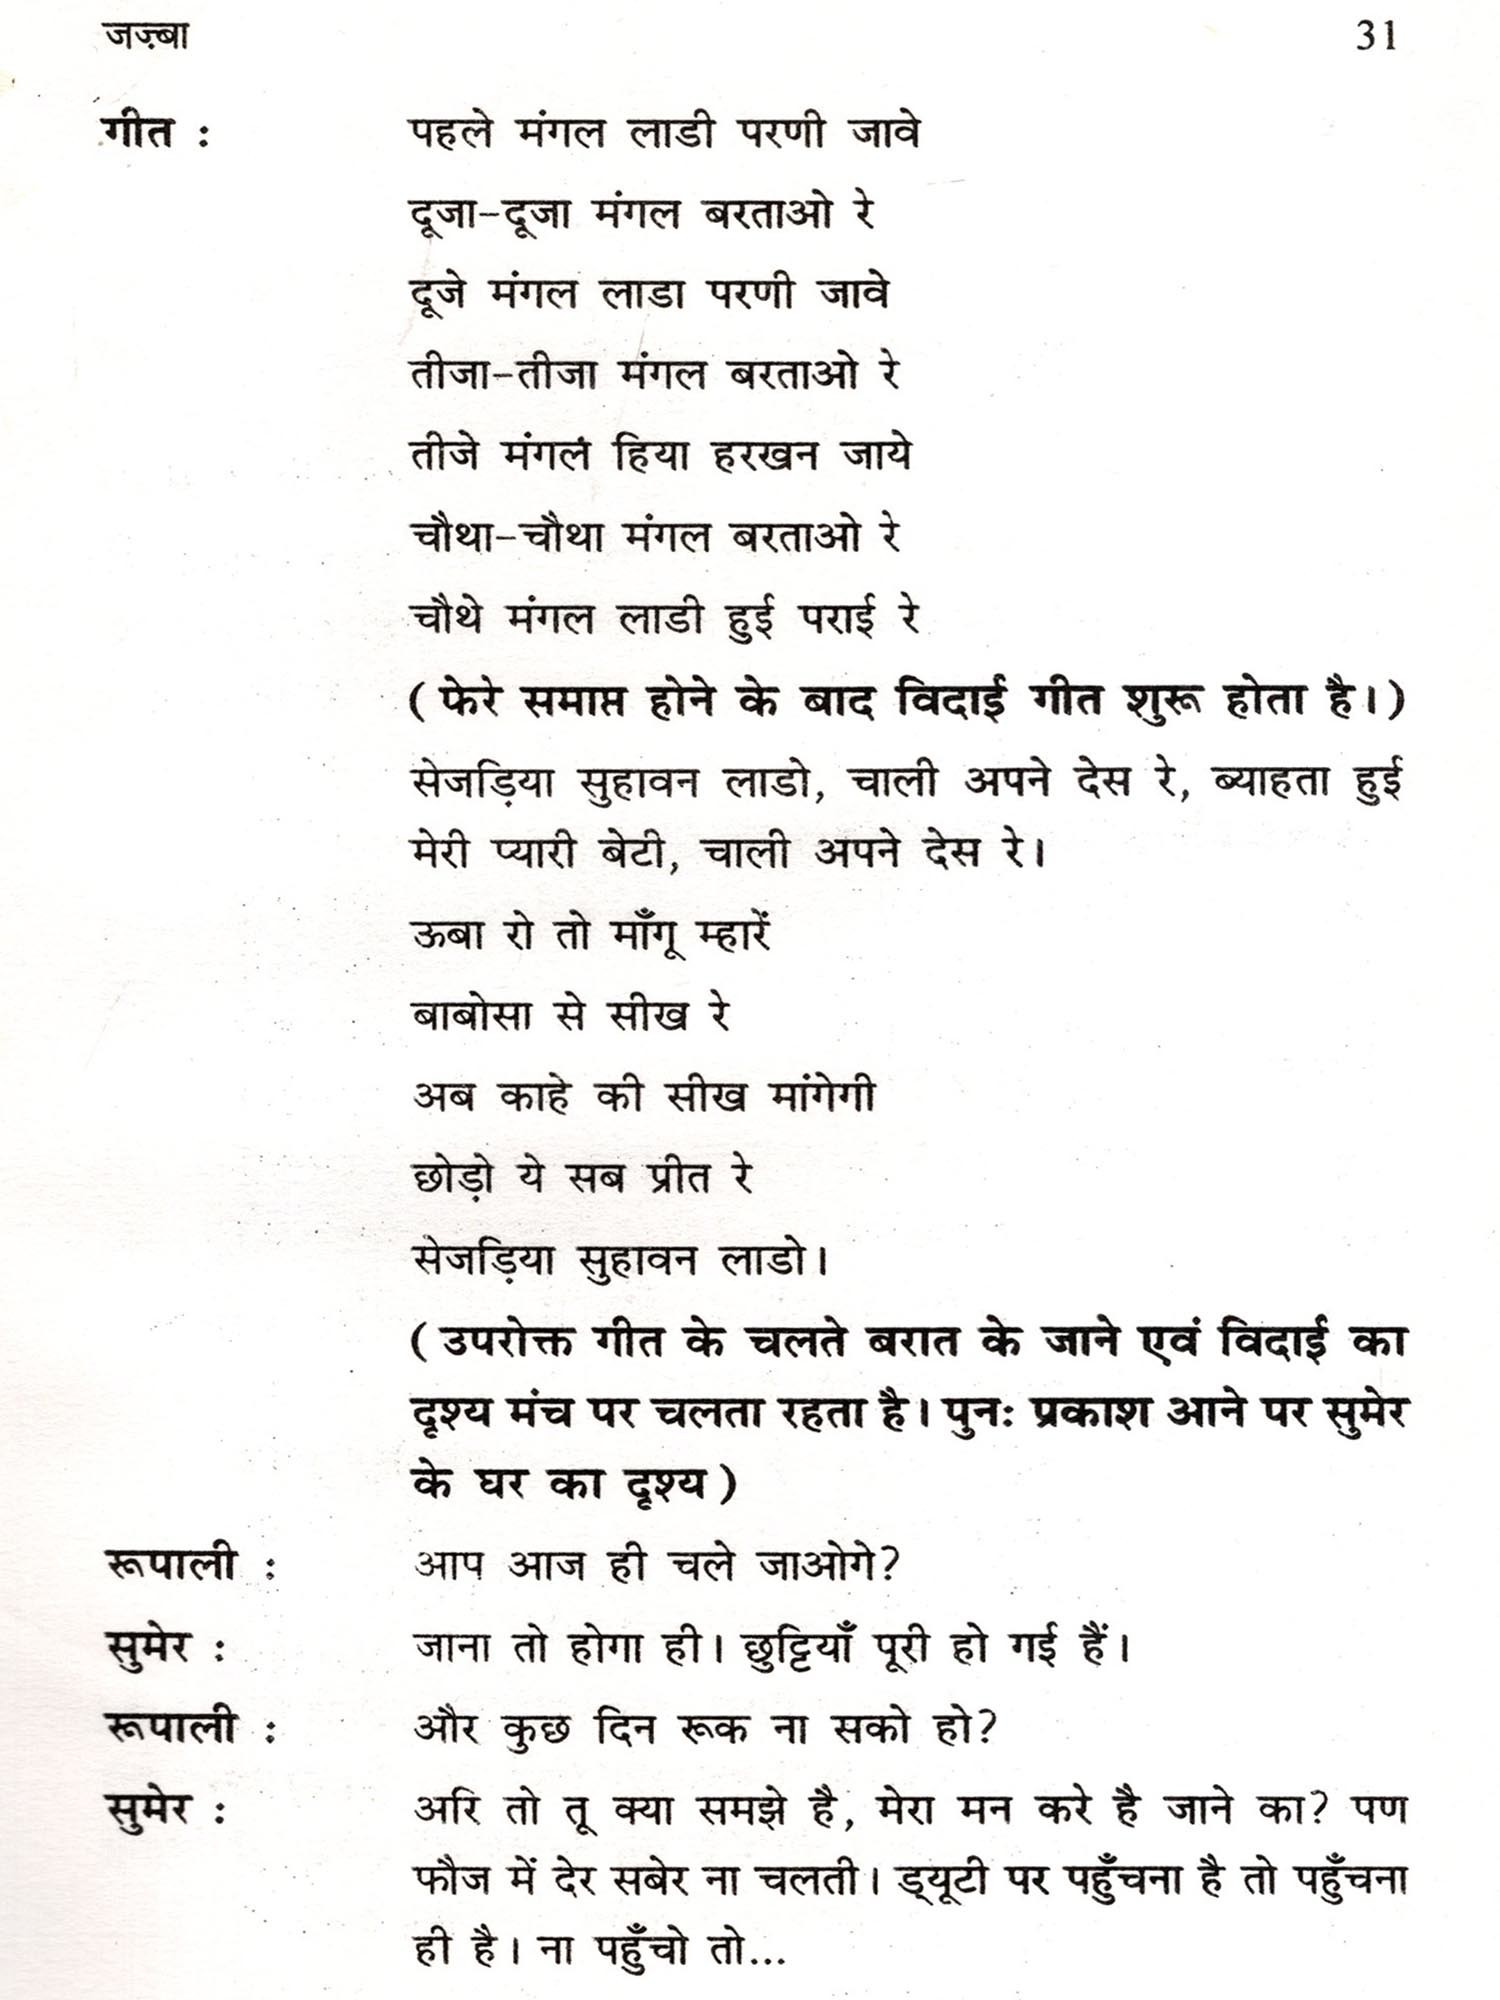 जज़्बा 31
गीत : पहले मंगल लाडी परणी जावे
दूजा-दूजा मंगल बरताओ रे
दूजे मंगल लाडा परणी जावे
तीजा-तीजा मंगल बरताओ रे
तीजे मंगल हिया हरखन जाये
चौथा-चौथा मंगल बरताओ रे
चौथे मंगल लाडी हुई पराई रे
(फेरे समाप्त होने के बाद विदाई गीत शुरू होता है।)
सेजड़िया सुहावन लाडो, चाली अपने देस रे, ब्याहता हुई
मेरी प्यारी बेटी, चाली अपने देस रे।
ऊबा रो तो माँगू म्हारें
बाबोसा से सीख रे
अब काहे की सीख मांगेगी
छोड़ो ये सब प्रीत रे
सेजड़िया सुहावन लाडो।
(उपरोक्त गीत के चलते बरात के जाने एवं विदाई का
दृश्य मंच पर चलता रहता है। पुनः प्रकाश आने पर सुमेर
के घर का दृश्य)
रूपाली : आप आज ही चले जाओगे?
सुमेर : जाना तो होगा ही। छुट्टियाँ पूरी हो गई हैं।
रूपाली : और कुछ दिन रूक ना सको हो?
सुमेर : अरि तो तू क्या समझे है, मेरा मन करे है जाने का? पण
फौज में देर सबेर ना चलती। ड्यूटी पर पहुँचना है तो पहुँचना
ही है। ना पहुँचो तो...